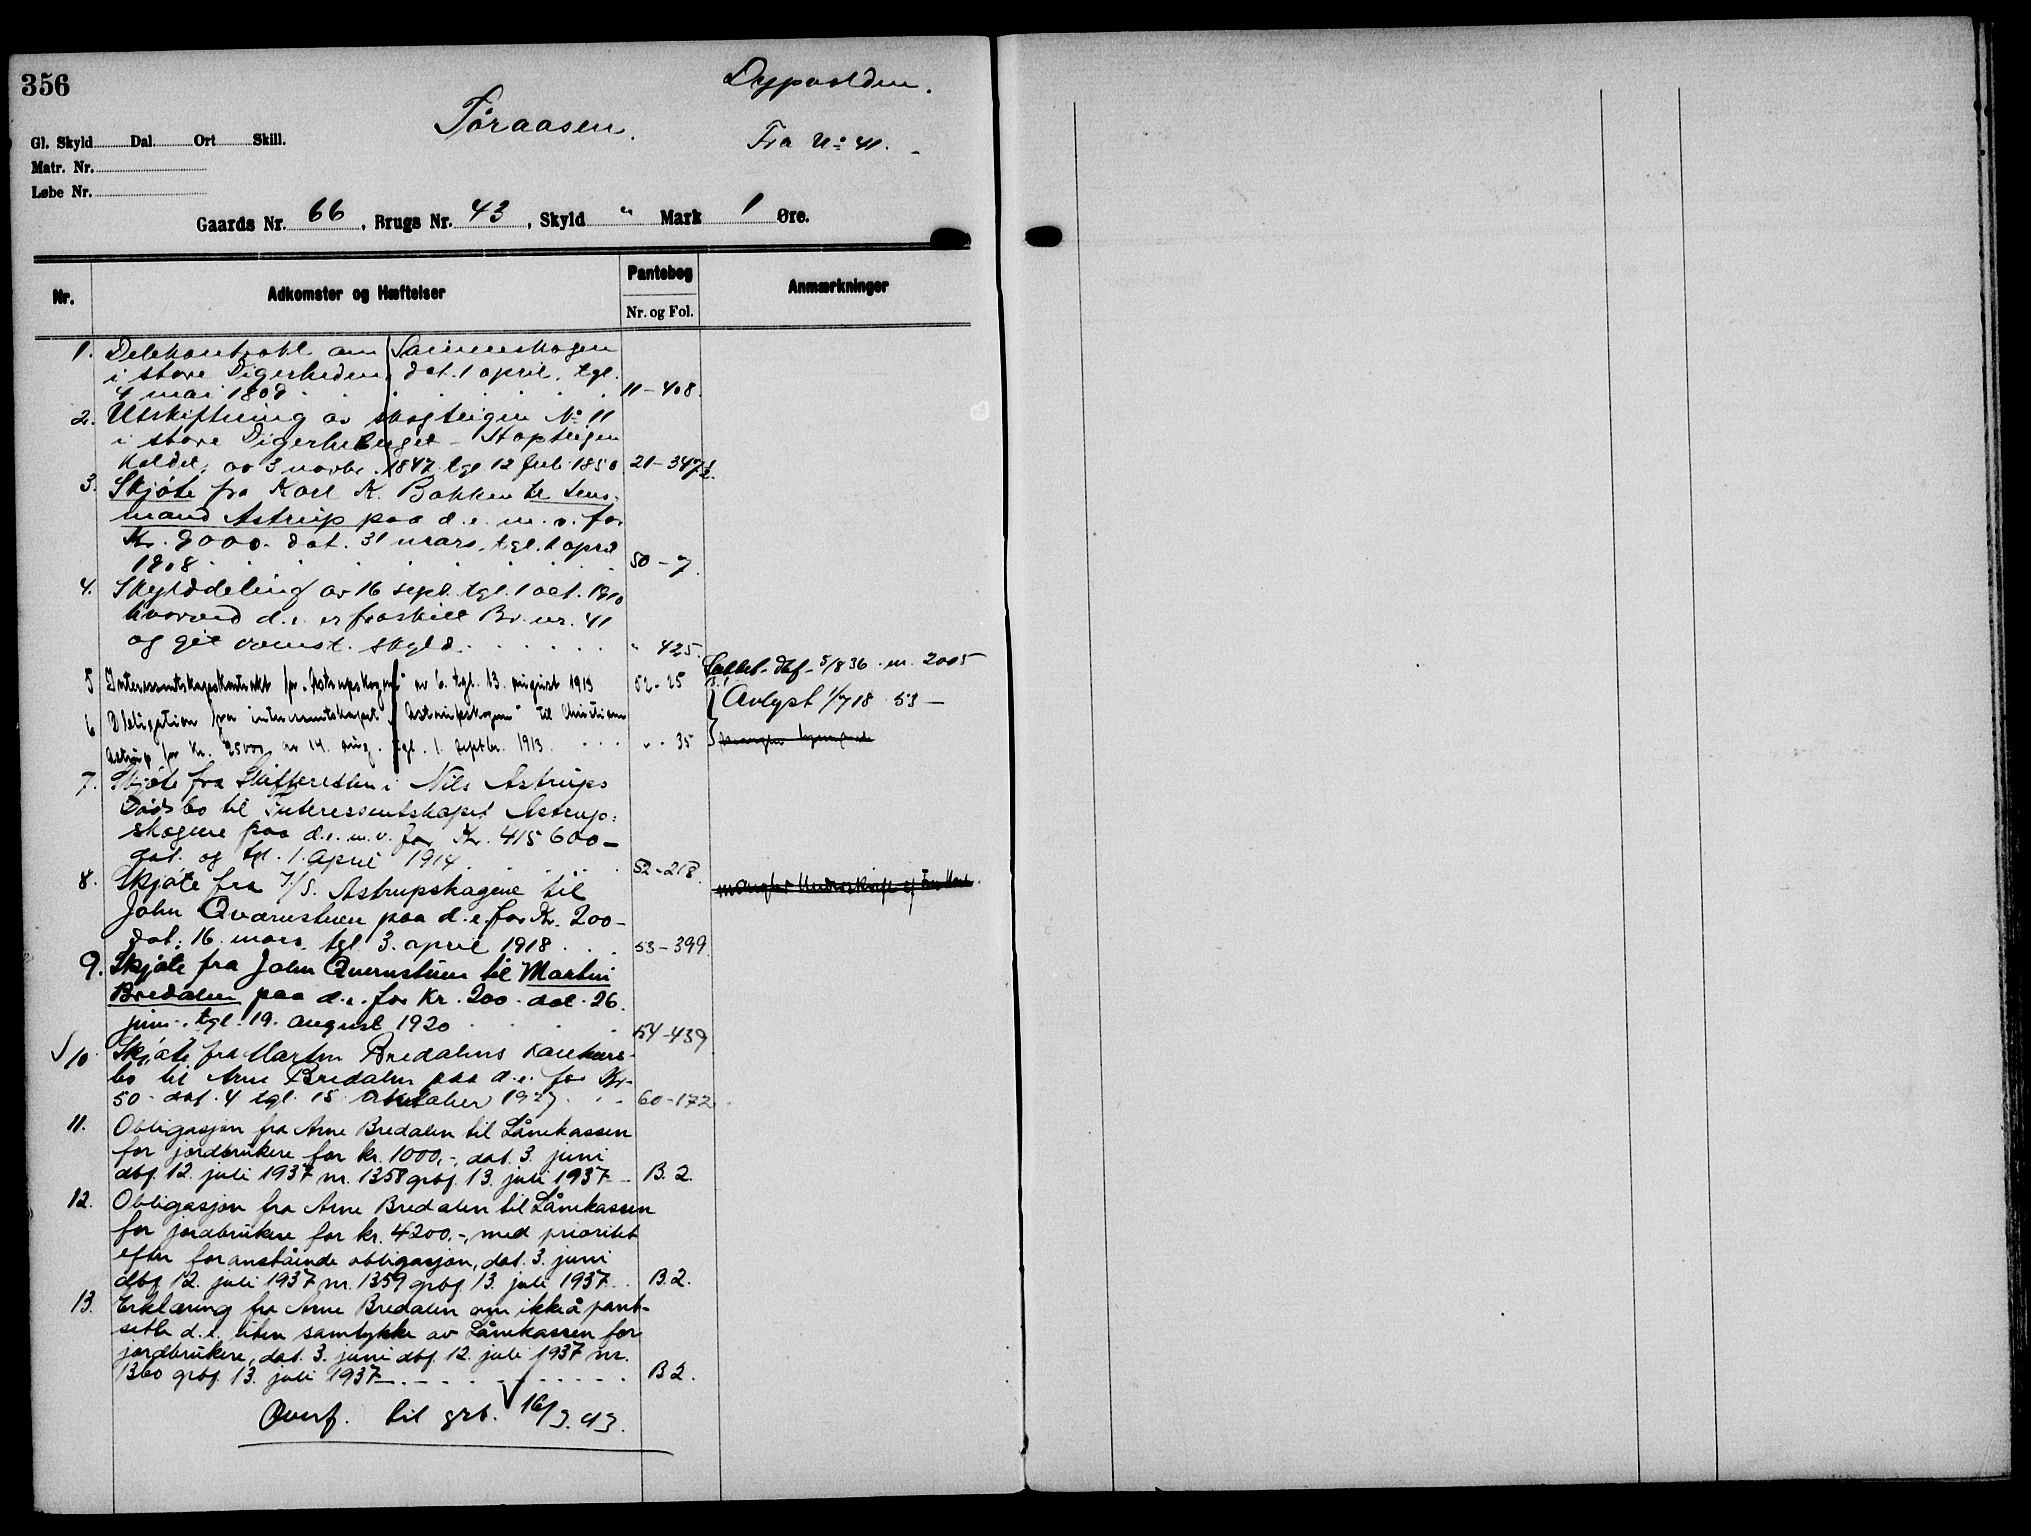 356
Dagpostdm.
Tøraasen.
Fra No 41.
Gl. Skyld Dal. Ort Skill.
Matr. Nr.
Løbe Nr.
Gaards Nr. 66, Brugs Nr. 43, Skyld " Mark 1 Øre.
Nr. Adkomster og Hæftelser Pantebog Nr. og Fol. Anmærkninger
1. Delekontrakt om Sameieskogen
i store Digerheden, dat. 1 april, tgl.
4 mai 1809 11-408.
2. Utskiftning av skogteigen No 11
i store Digerheberget - Stopteigen
kaldet, av 3 novbr. 1847 tgl 12 feb. 1850 21-347½.
3. Skjøte fra Karl K. Bakken til Lens-
mand Astrup paa d.e. m.v. for
Kr. 9000. dat. 31 mars, tgl. 1 april
1908 50-7.
4. Skylddeling av 16 sept. tgl. 1 oct. 1910
hvorved d.e. er fraskilt Br. nr. 41
og git ovenst. skyld. " 425.
5 Interessentskapskontrakt for "Astrupskogene" av 6. tgl. 13. august 1913 52-25 Slettet dbf 5/8 36 nr. 2005
6 Obligation fra interessentskapet "Astrupskogene" til Christian
Avlyst 1/7 18 53-
Astrup for Kr. 25000 av 14. aug. tgl. 1. septbr. 1913. " - 35
7. Skjøte fra Skifteretten i Nils Astrups
Dødsbo til Interessentskapet Astrup-
skogene paa d.e. m.v. for Kr. 415 600-
dat. og tgl. 1. april 1914 52-218
8. Skjøte fra I/S. Astrupskogene til
John Qværnstuen paa d.e. for Kr. 200-
dat. 16. mars tgl 3. april 1918 53-399
9. Skjøte fra John Qvernstuen til Martin
Bredalen paa d.e. for Kr. 200. dat. 26.
juni. tgl. 19. august 1920 54-439
10. Skjøte fra Martin Bredalens konkurs-
bo til Arne Bredalen paa d.e. for Kr.
50. dat. 4 tgl. 15 oktober 1927 60-172
11. Obligasjon fra Arne Bredalen til Lånekassen
for jordbrukere for kr. 1000,-, dat. 3. juni
dbf. 12. juli 1937 nr. 1358 grbf. 13. juli 1937 B. 2.
12. Obligasjon fra Arne Bredalen til Lånekassen
for jordbrukere for kr. 4200,-, med prioritet
efter foranstående obligasjon, dat. 3. juni
dbf. 12. juli 1937 nr. 1359 grbf. 13. juli 1937 B. 2.
13. Erklæring fra Arne Bredalen om ikke å pant-
sette d.e. uten samtykke av Lånekassen for
jordbrukere, dat. 3. juni dbf. 12. juli 1937 nr.
1360 grbf. 13. juli 1937 B 2.
Overf. til grb. 16/3.43.